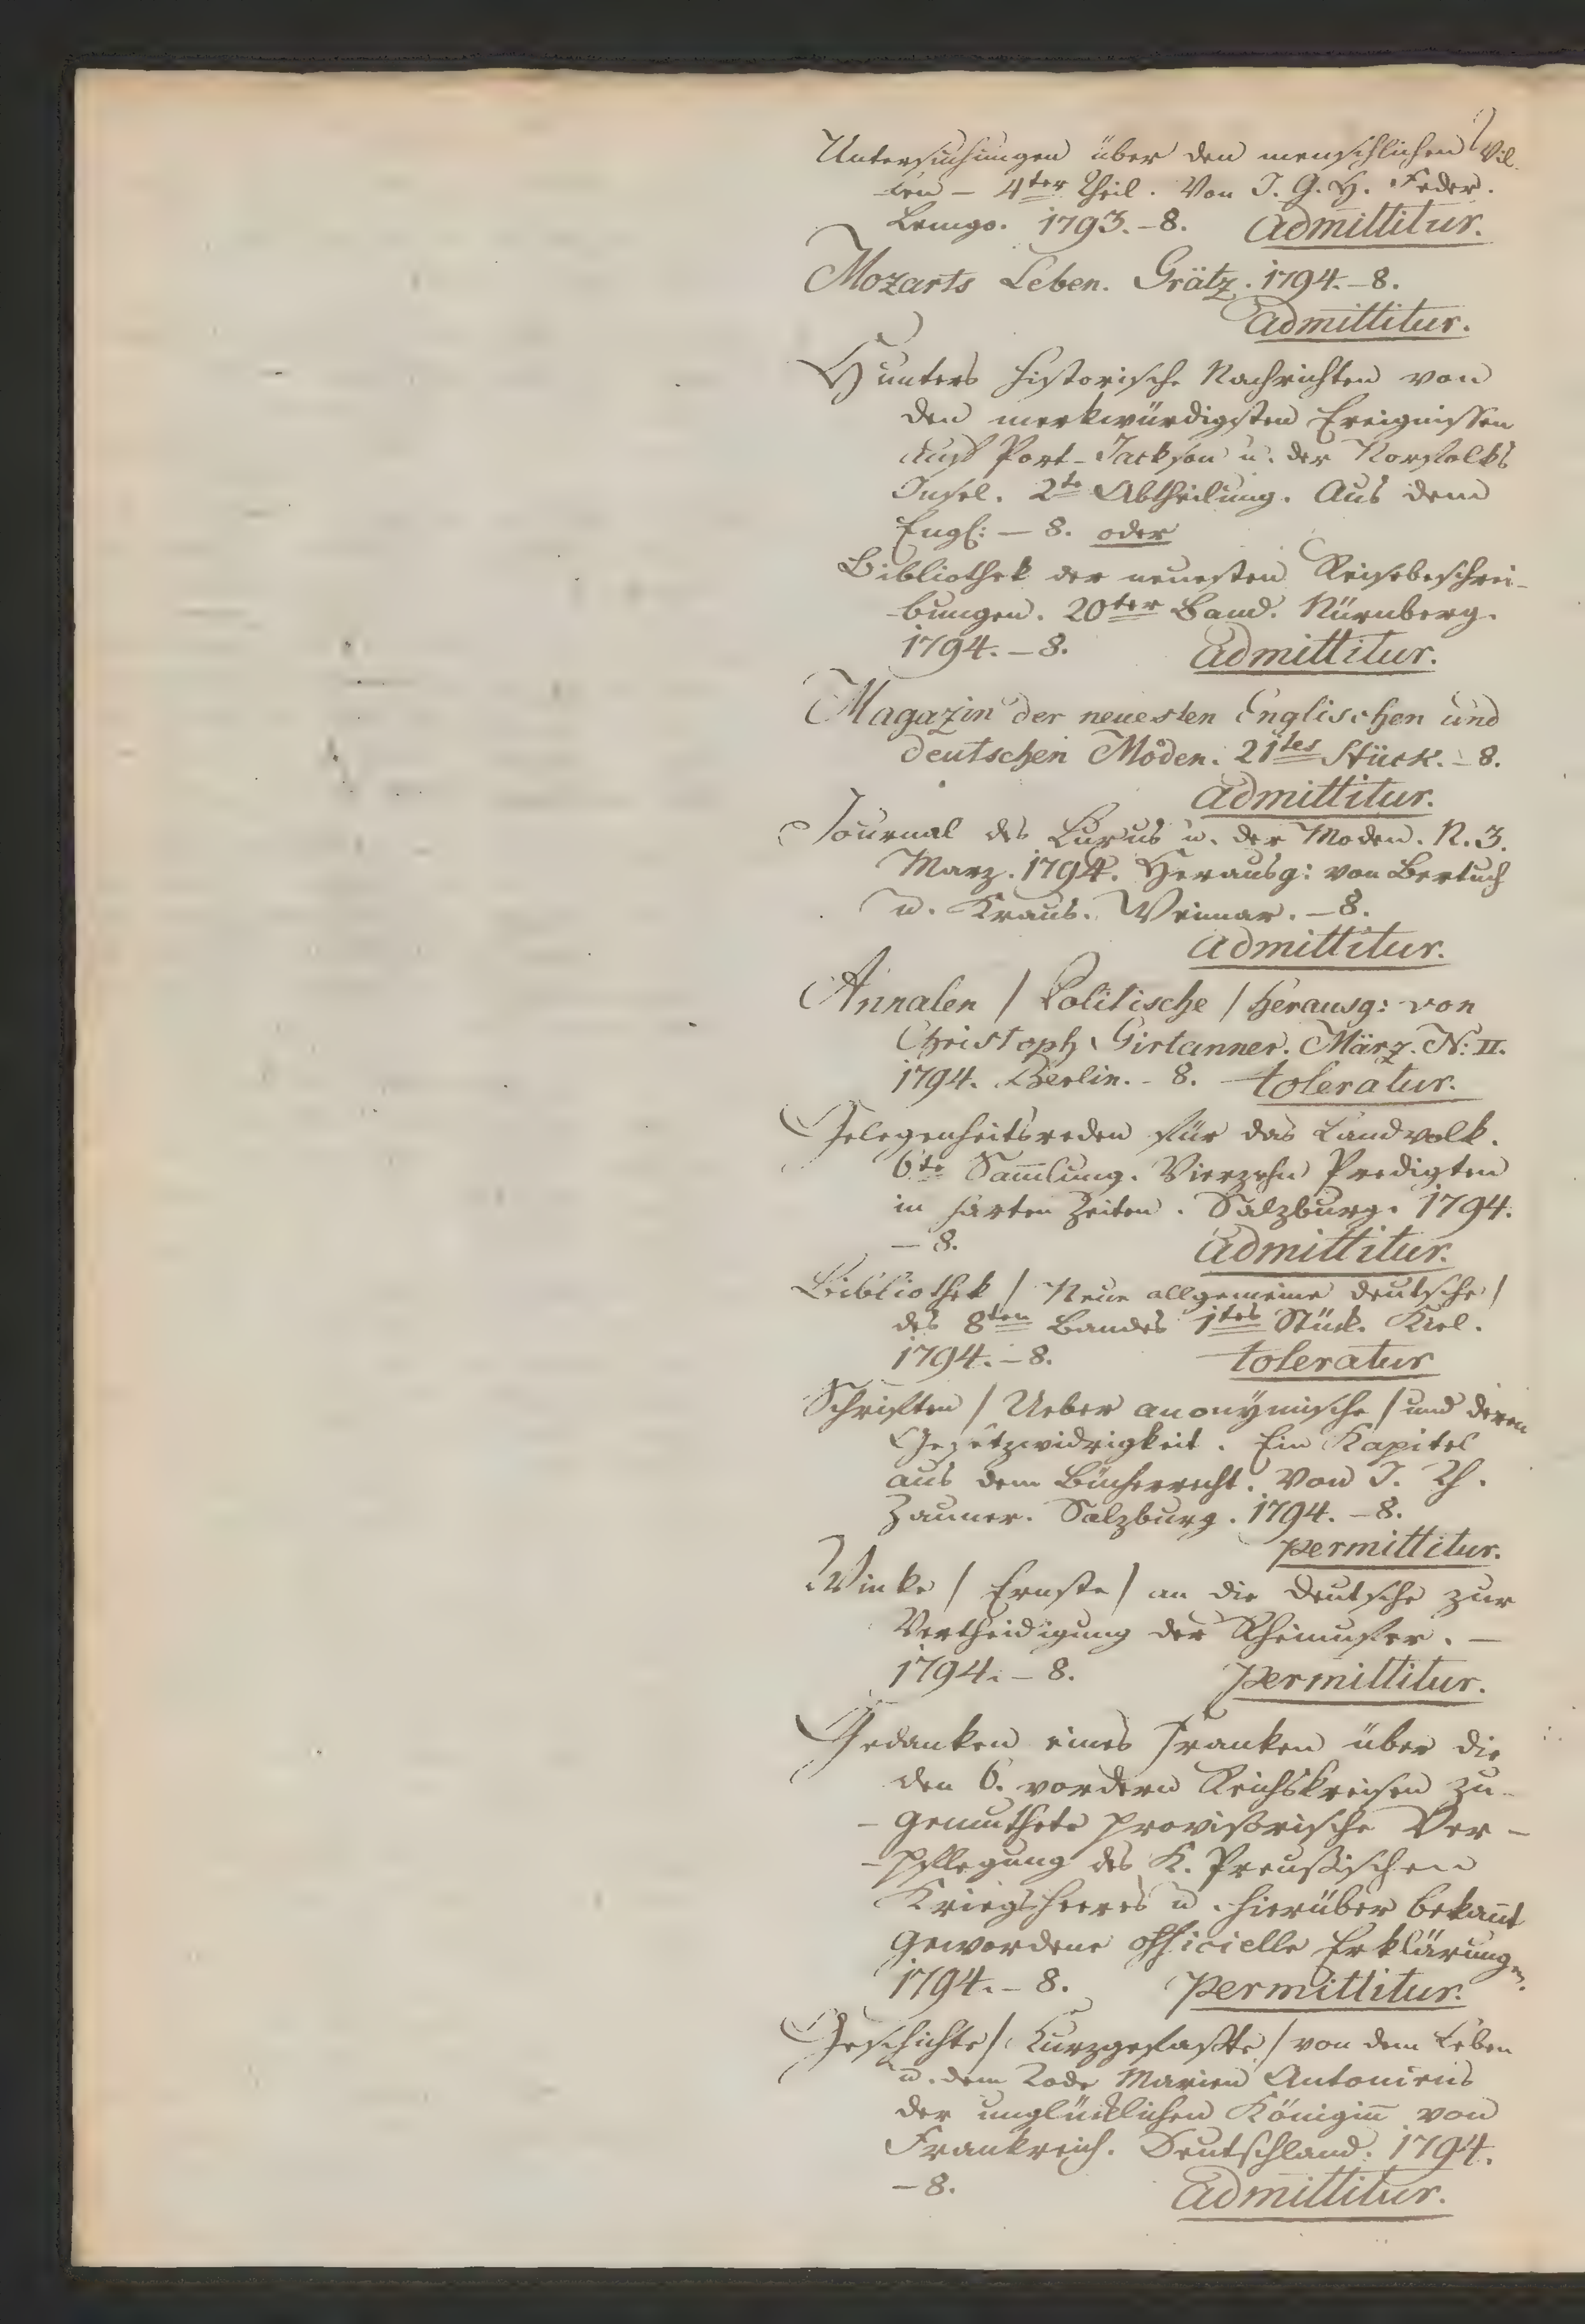 Untersuchungen über den menschlichen Wil-
-len – 4ter Theil. Von J. G. H. Feder.
Lemgo. 1793. – 8. admittitur.
Mozarts Leben. Grätz. 1794. – 8.
admittitur.
Hunters historische Nachrichten von
den merkwürdigsten Ereignissen
auf Port-Jackson u. der Norfolks
Insel. 2te Abtheilung. Aus dem
Engl: – 8. oder
Bibliothek der neuesten Reisebeschrei-
-bungen. 20ter Band. Nürnberg.
1794. – 8. admittitur.
Magazin der neuesten Englischen und
deutschen Moden. 21tes Stück. – 8.
admittitur.
Journal des Luxus u. der Moden. N. 3.
Marz. 1794. Herausg: von Bertuch
u. Kraus. Weimar. – 8.
admittitur.
Annalen / Politische / herausg: von
Christoph Girtanner. März. N: II.
1794. Berlin. – 8. toleratur.
Gelegenheitsreden für das Landvolk.
6te Sam̅lung. Vierzehn Predigten
in harten Zeiten. Salzburg. 1794.
– 8. admittitur.
Bibliothek / Neue allgemeine deutsche /
des 8ten Bandes 1tes Stück. Kiel.
1794. – 8. toleratur
Schriften / Ueber anonÿmische / und deren
Gesetzwidrigkeit. Ein Kapitel
aus dem Bücherrecht. Von J. Th.
Zauner. Salzburg. 1794. – 8.
permittitur.
Winke / Ernste / an die Deutsche zur
Vertheidigung der Rheinufer. –
1794. – 8. permittitur.
Gedanken eines Franken über die
den 6. vordern Reichskreisen zu-
-gemuthete provisorische Ver-
-pflegung des K. Preußischen
Kriegsheeres u. hierüber bekan̅t
gewordene officielle Erklärungen.
1794. – 8. permittitur.
Geschichte / Kurzgefaßte / von dem Leben
u. dem Tode Marien Antoniens
der unglücklichen Königin̅ von
Frankreich. Deutschland. 1794.
– 8. admittitur.